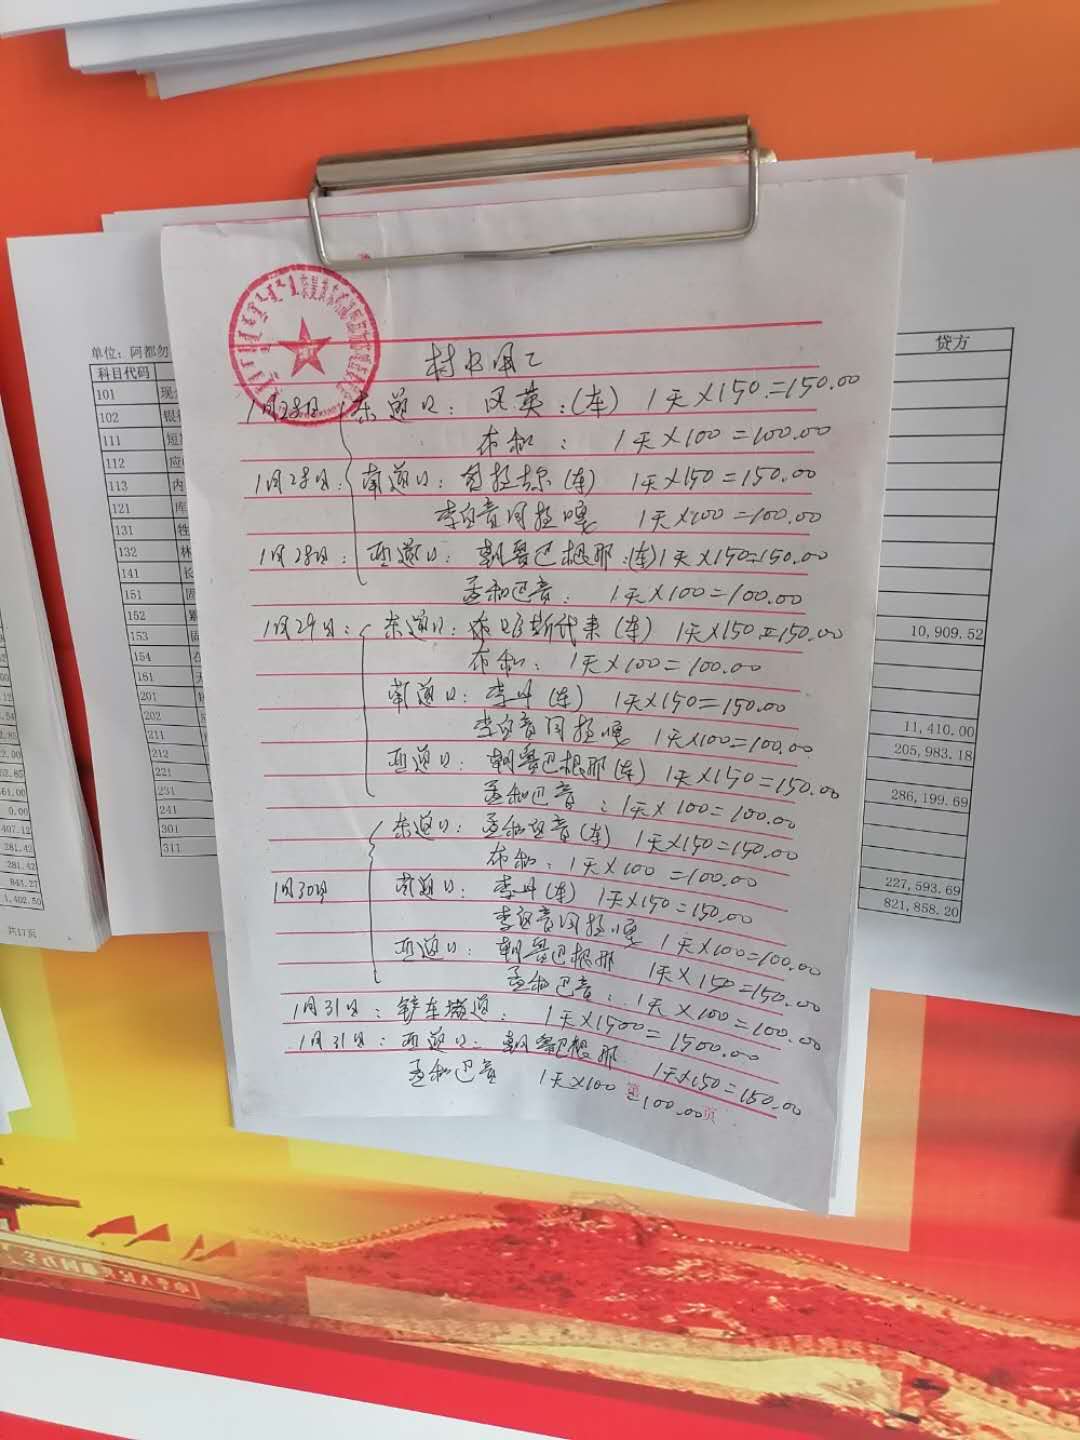 村书用工
1月28日 东道口：凤英：(车) 1天×150=150.00
布和： 1天×100=100.00
1月28日： 南道口： (车) 1天×150=150.00
李白音冈拉嘎 1天×100=100.00
1月28日： 西道口： 朝鲁巴根那：(车) 1天×150=150.00
孟和巴音： 1天×100=100.00
1月29日： 东道口： (车) 1天×150=150.00
布和： 1天×100=100.00
南道口： 李丹 (车) 1天×150=150.00
李白音冈拉嘎 1天×100=100.00
西道口： 朝鲁巴根那 (车) 1天×150=150.00
孟和巴音： 1天×100=100.00
东道口： 孟和巴音 (车) 1天×150=150.00
布和： 1天×100=100.00
1月30日 南道口： 李丹 (车) 1天×150=150.00
李白音冈拉嘎 1天×100=100.00
西道口： 朝鲁巴根那 1天×150=150.00
孟和巴音： 1天×100=100.00
1月31日： 铲车堵道： 1天×1500=1500.00
1月31日： 西道口： 朝鲁巴根那 1天×150=150.00
孟和巴音 1天×100=100.00
第 页
单位：阿都勿
科目代码
101 现
102 银
111 短
112 应
113 内
121 库
131 牲
132 林
141 长
151 固
152 累
153 固
154 在
161 无
201
202
211
212
221
231
241
301
311
贷方
10,909.52
11,410.00
205,983.18
286,199.69
227,593.69
821,858.20
407.12
281.42
281.42
843.27
1,402.50
共17页